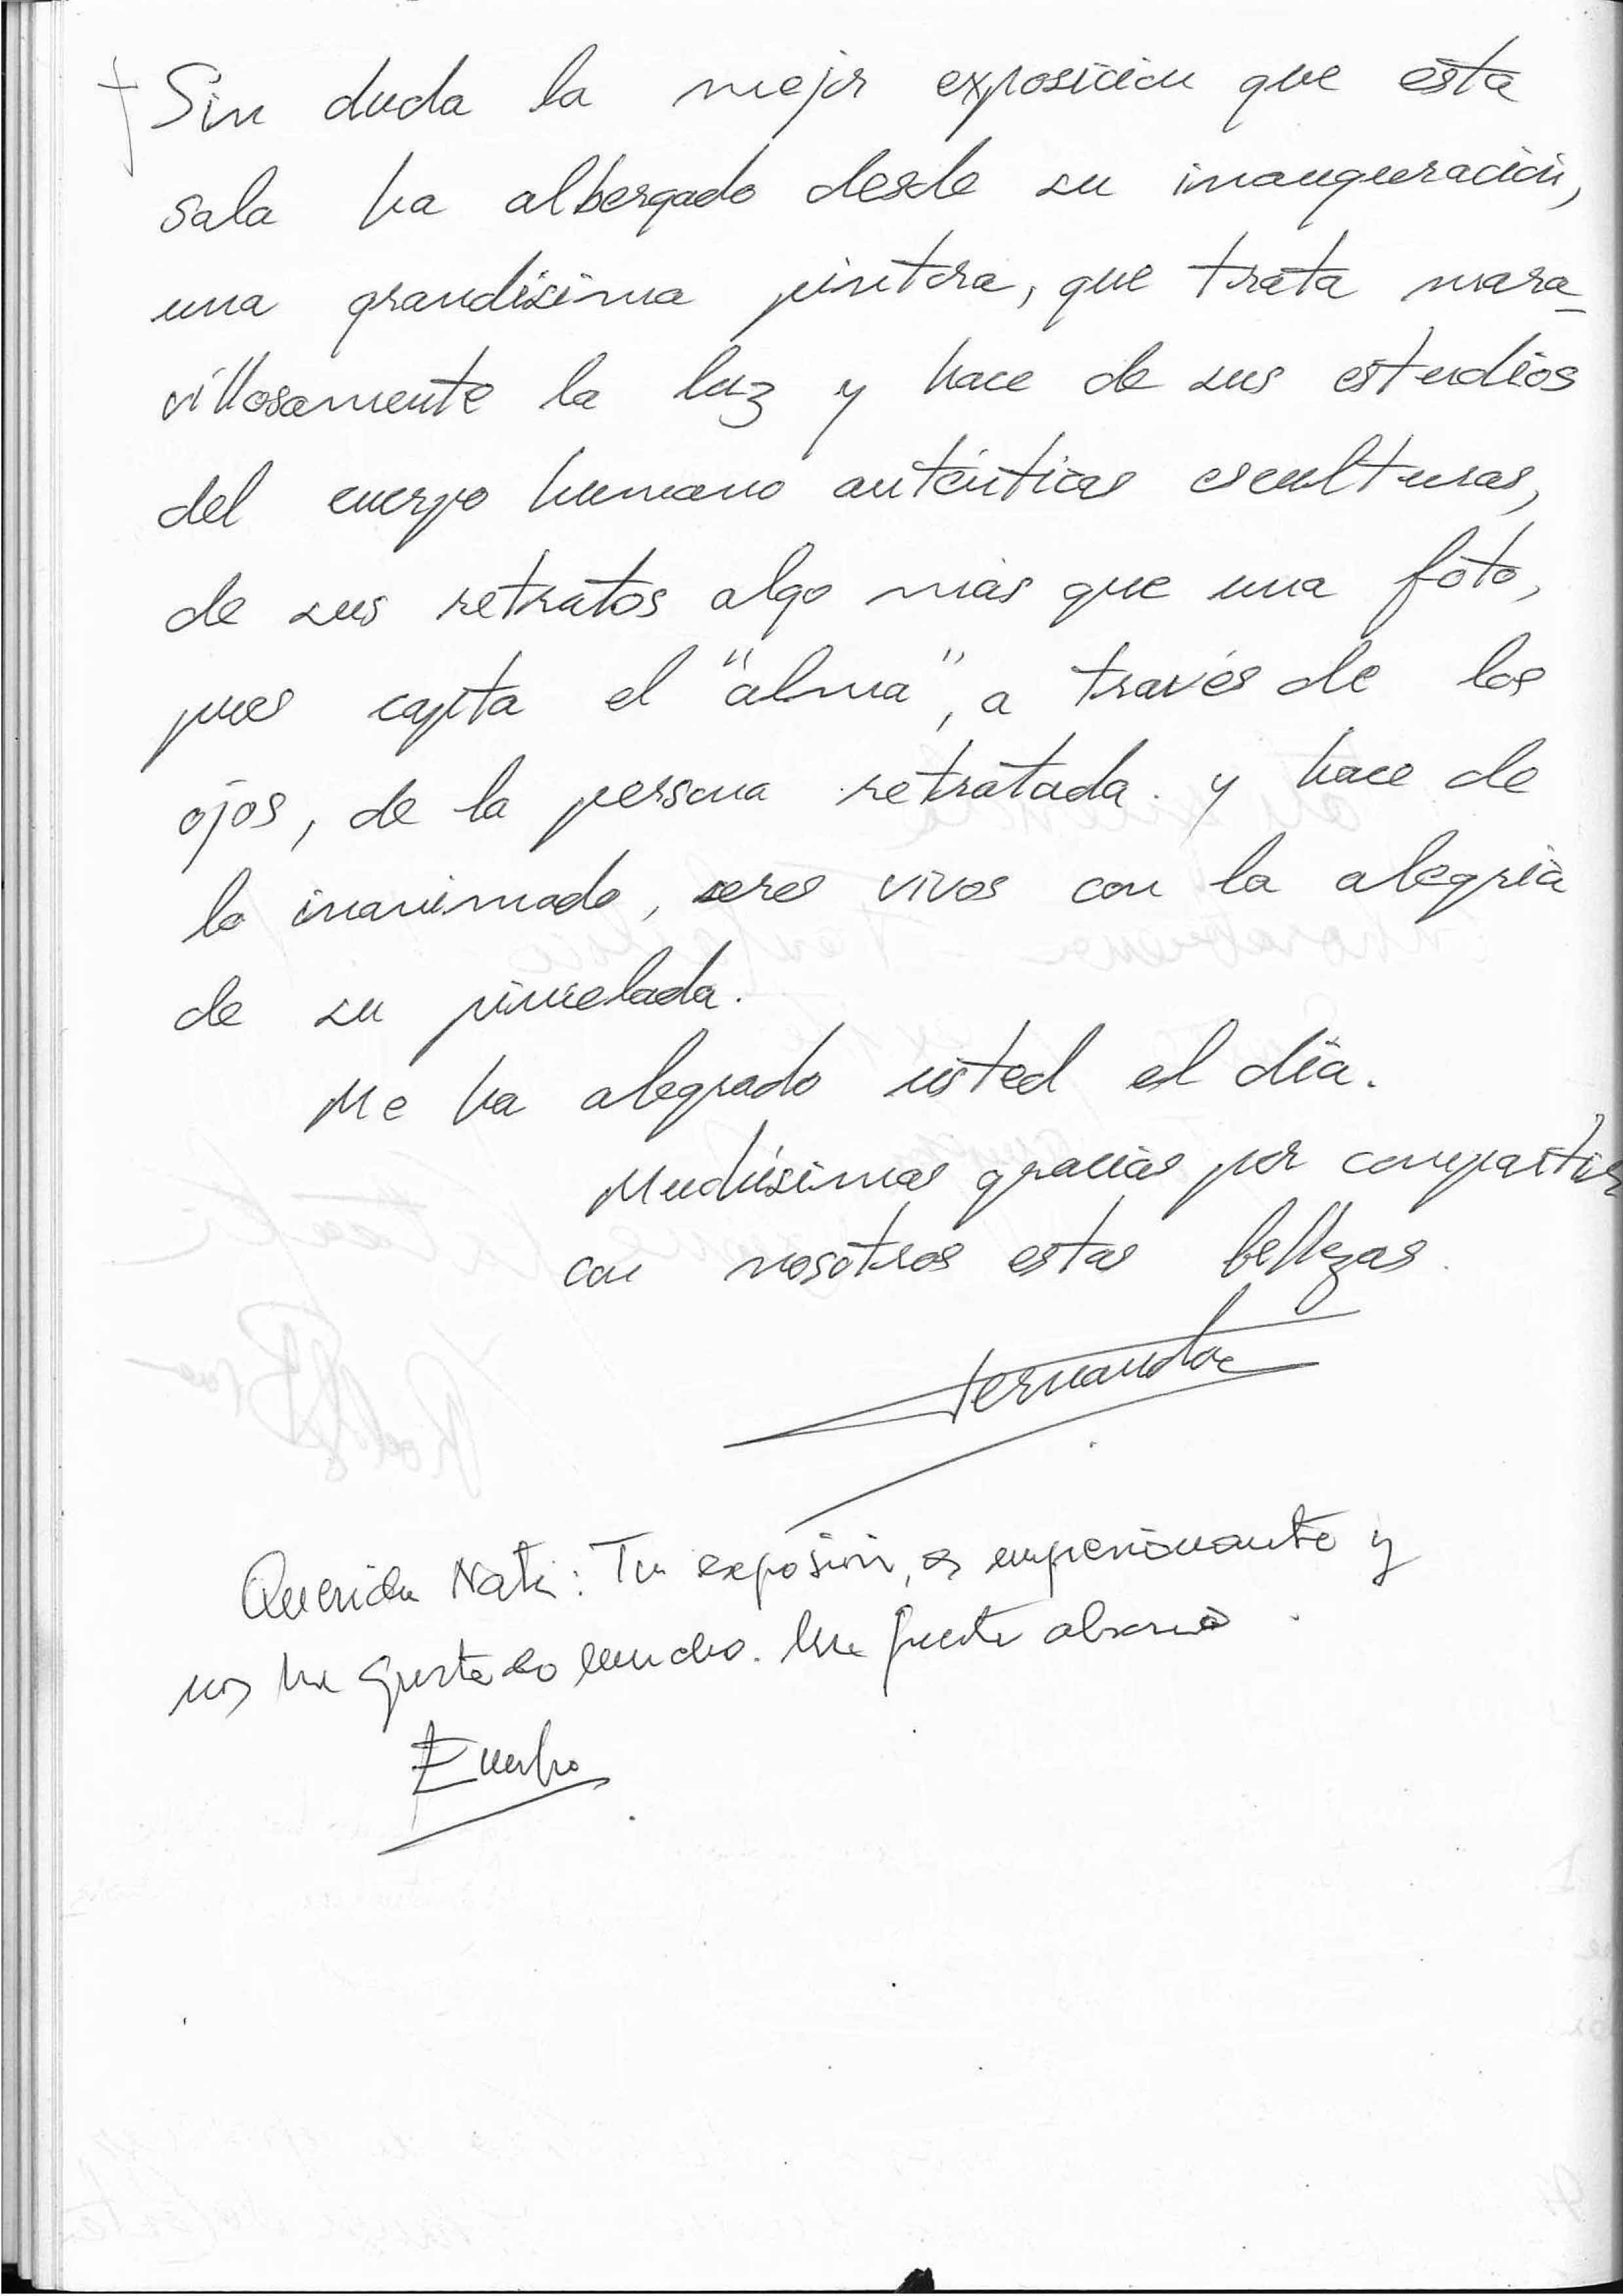 Sin duda la mejor exposición que esta
sala ha albergado desde su inauguración,
una grandísima pintora, que trata mara-
villosamente la luz y hace de sus estudios
del cuerpo humano auténticas esculturas,
de sus retratos algo más que una foto,
pues capta el "alma", a través de los
ojos, de la persona retratada. y hace de
lo inanimado, seres vivos con la alegría
de su pincelada.
Me ha alegrado usted el día.
Muchísimas gracias por compartir
con nosotros estas bellezas.
Querida Nati: Tu exposión, es impresionante y
nos ha gustado mucho. Un fuerte abrazo.